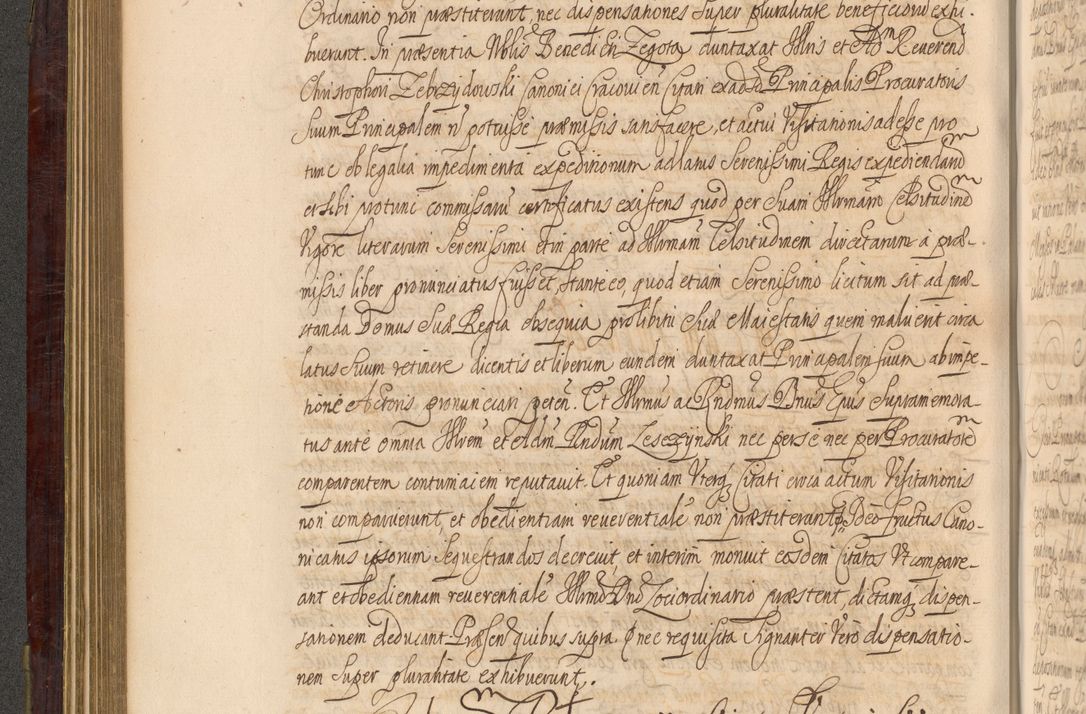 Ordinario non præstiterunt, nec dispensationes super pluralitate beneficiorū exhi-
buerunt. In præsentia Nblis Benedicti Zegota duntaxat Illris et Adm Reverend
Christophori Zebrzydowski Canonici Cracovien Citati ex adso Principalis Procuratoris
suum Principalem n potuisse præmissis satisfacere, et actui Visitationis adesse pro
tunc ob legalia impedimenta expeditionum ad latus Serenissimi Regis expediendarū
et sibi protunc commissarū certificatus existens quod per suam Illrmam Celsitudinē
Vigore literarum Serenissimi et in parte ad Illrmam Celsitudinem directarum à præ-
missis liber pronunciatus fuisset, stante eo, quod etiam Serenissimo licitum sit ad præ-
standa Domus Suæ Regiæ obsequia pro libitu Suæ Maiestatis quem maluerit circa
latus suum retinere dicentis et liberum eundem duntaxat Principalem suum ab impe-
titione Actoris pronunciari peten. Et Illrmus ac Rndmus Dnus Epus supramemora-
tus ante omnia Illrem et Adm Rndum Leszczynski nec per se nec per Procuratorē
comparentem contumaciem reputavit. Et quoniam Vterq Citati circa actum Visitationis
non comparuerunt, et obedientiam reverentialē non præstiterunt Ideo fructus Cano-
nicatus ipsorum sequestrandos decrevit, et interim monuit eosdem Citatos Vt compare-
ant et obedientiam reverentialē Illrmo Dno Loci ordinario præstent, dictamq dispen-
sationem deducant Præsen quibus supra nec requisita signanter Verò dispensatio-
nem super pluralitate exhibuerunt.